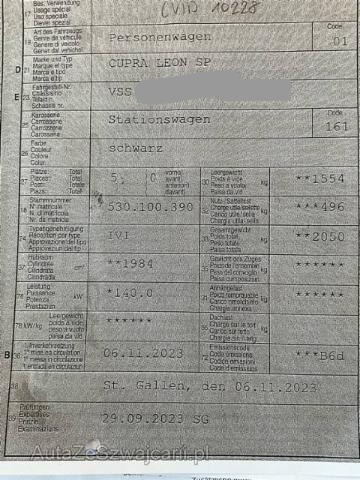 (VID 10228
Bes. Verwendung
Usage spécial
Uso speciale
Diever spezial
Art des Fahrzeugs
Genre de véhicule
Genere di veicolo
Gener dal vehichel
Personenwagen
Code
01
D
21
Marke und Typ
Marque et type
Marca e tipo
Marca e tip
CUPRA LEON SP
E
23
Fahrgestell-Nr.
Châssis no
Telaio n.
Schassis nr.
VSS
25
Karosserie
Carrosserie
Carrozzeria
Carossaria
Stationswagen
Code
161
26
Farbe
Couleur
Colore
Colur
schwarz
27
Plätze: Total
Places: Total
Posti: Total
Plazs: Total
5,
vorne
avant
anteriori
davant
0
30
Leergewicht
Poids à vide
Peso a vuoto
Paisa da vid
kg
**1554
18
Stammnummer
N. di matricola
Nr. da matricla
530.100.390
32
Nutz-/Sattellast
Charge utile/sellette
Carico utile/sella
Chargia utila/sella
kg
***496
24
Typengenehmigung
Réception par type
Approvazione del tipo
Approvaziun dal tip
IVI
33
Gesamtgewicht
Poids total
Peso totale
Paisa totala
kg
**2050
37
Hubraum
Cylindrée
Cilindrata
Cilindrada
**1984
35
Gewicht des Zuges
Poids de l'ensemble
Peso del convoglio
kg
******
76
Leistung
Puissance
Potenza
Prestaziun
*140.0
31
Anhängelast
Poids remorquable
kg
******
78
kW/kg
Leergewicht
poids à vide
peso a vuoto
paisa da vid
******
55
Dachlast
Charge sur le toit
Carico sul tetto
Chargia sin il tetg
kg
******
B
36
1. Inverkehrsetzung
1re mise en circulation
1a messa in circolazione
06.11.2023
72
Emissionscode
Code émissions
Codice emissioni
Code d'emissiuns
***B6d
38
St. Gallen, den 06.11.2023
39
Prüfungen
Expertises
Prove
Examinaziuns
29.09.2023 SG
AutaZeSzwajcarii.pl